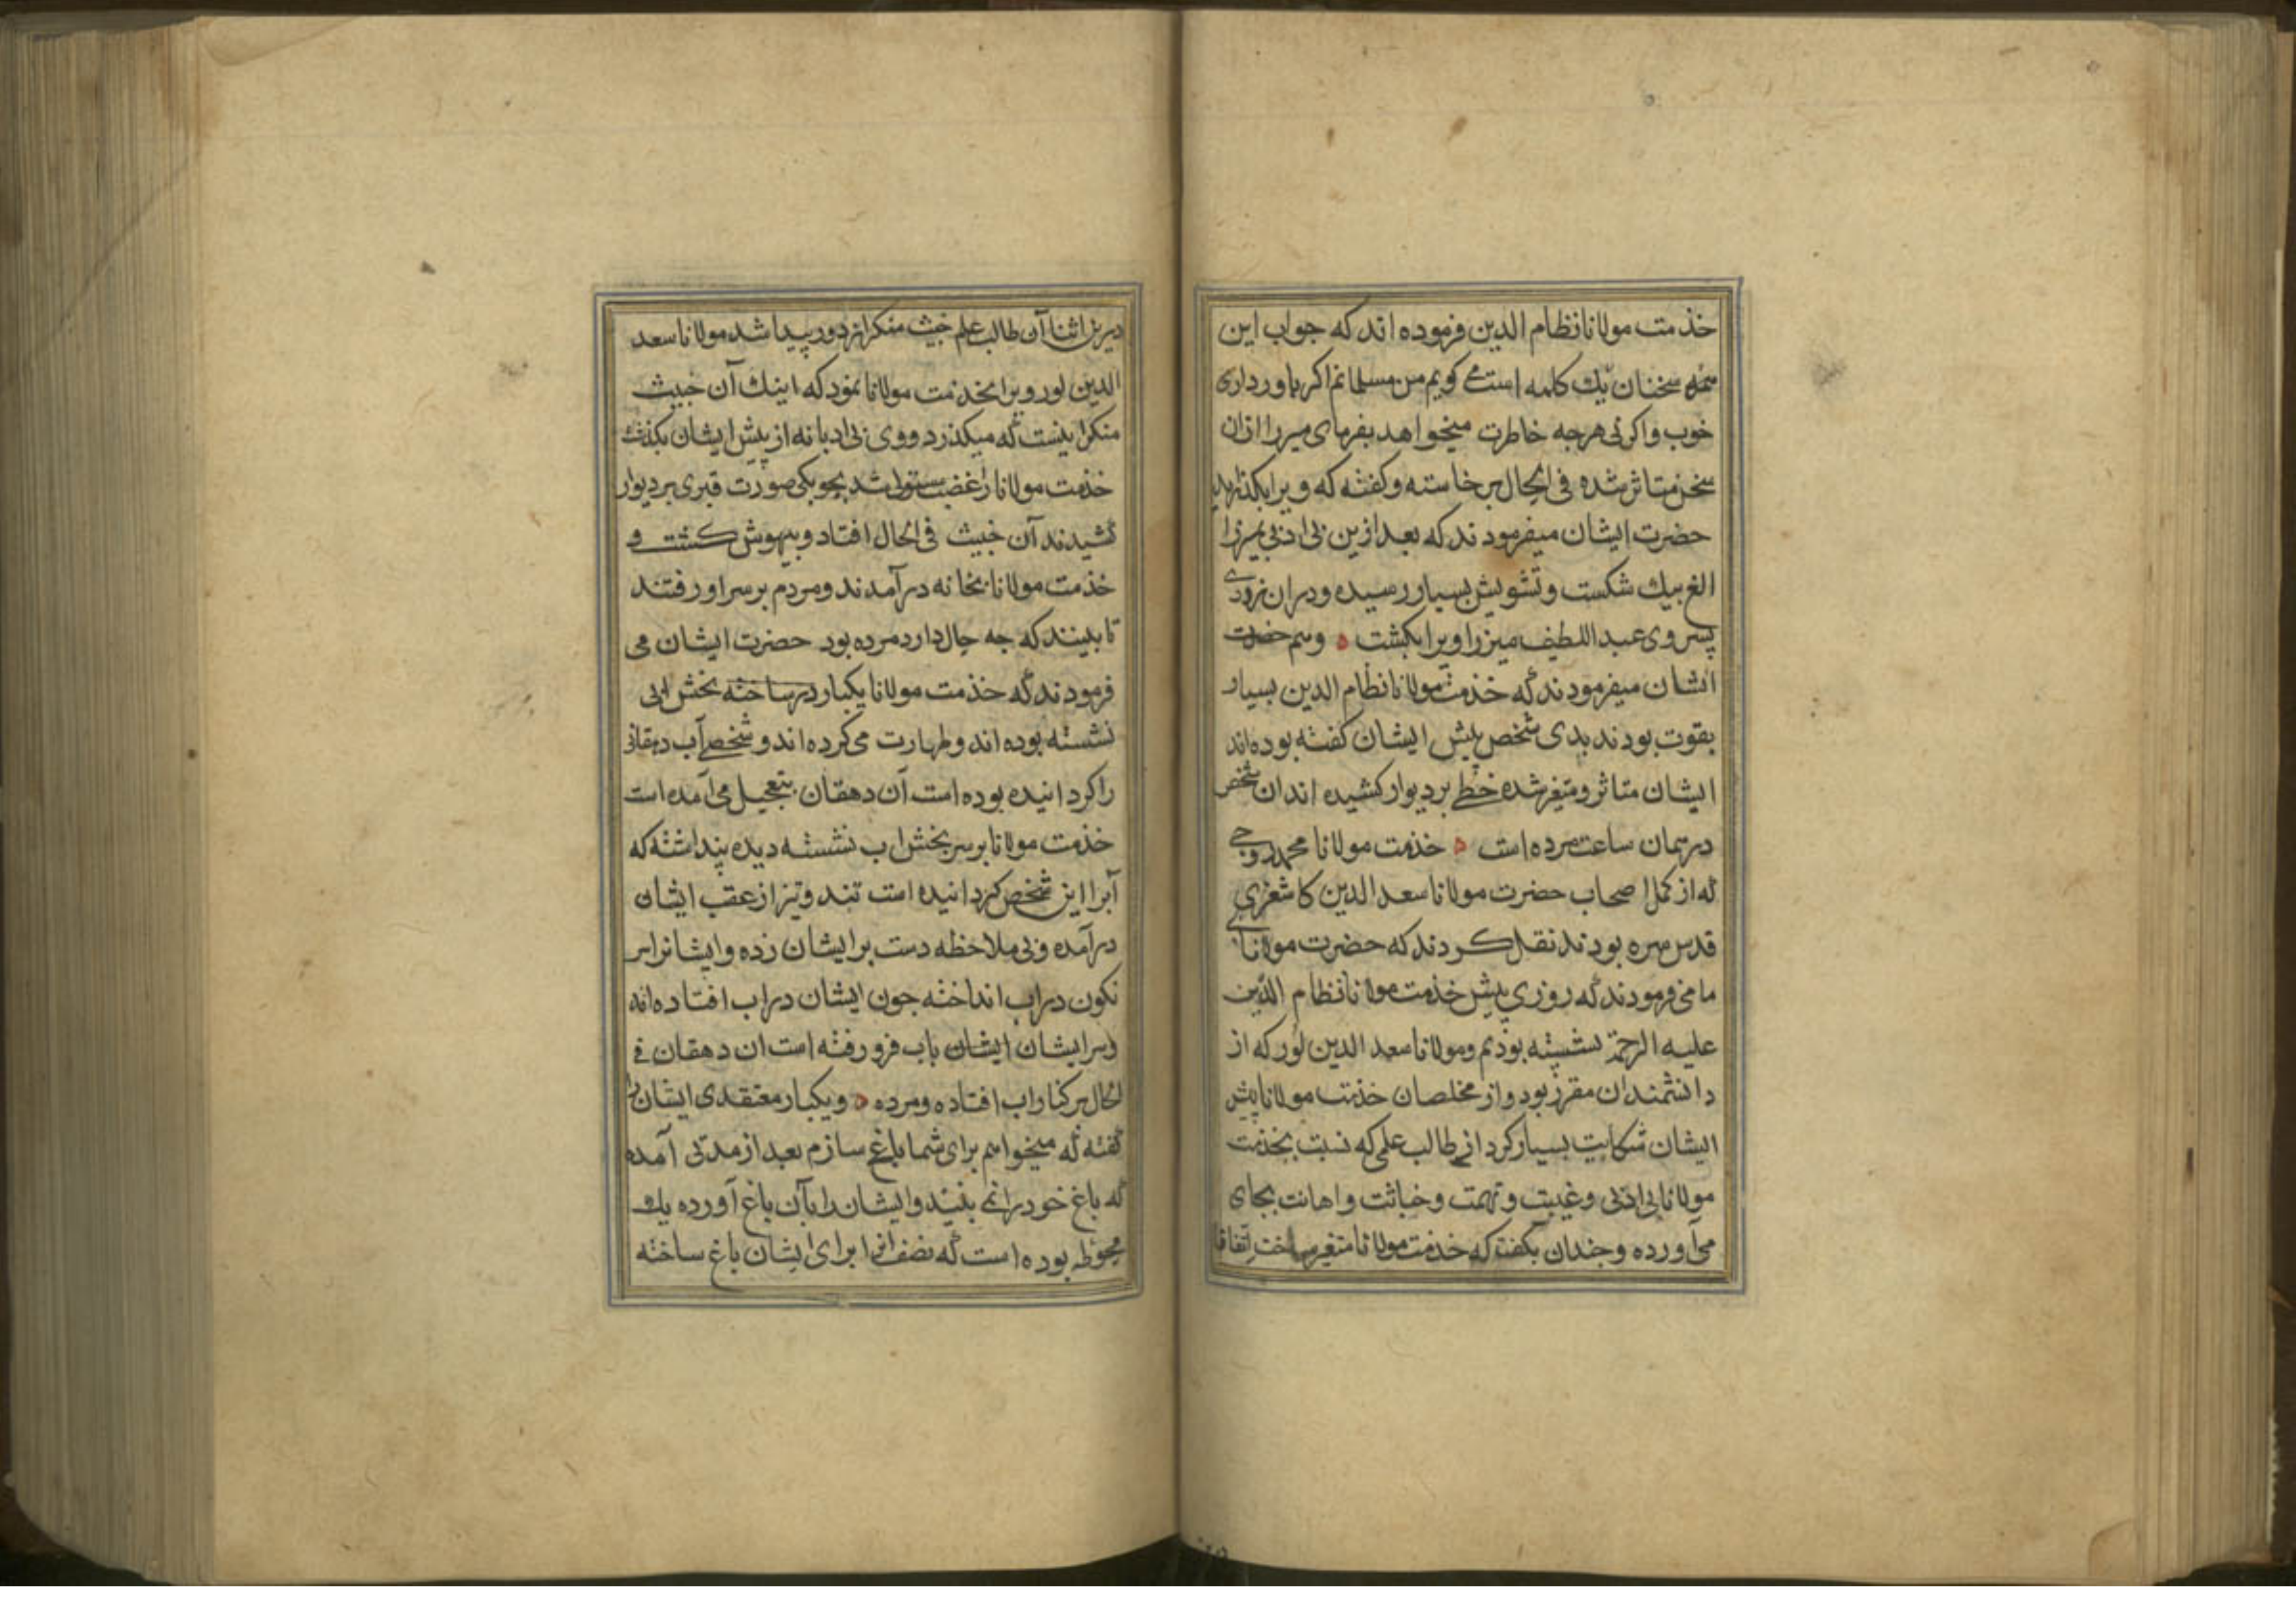 خذمت مولانا نظام الدین فرموده اند که جواب این
همه سخنان یک کلمه است می کویم من مسلمانم اکر باور داری
خوب واکر نی هرجه خاطرت میخواهد بفرمای میرزا ازان
سخن متاثر شده فی الحال برخاسته وکفته که ویرا بکذارید
حضرت ایشان میفرمودند که بعد ازین بی ادبی بمیرزا
الغ بیک شکست وتشویش بسیار رسیده ودران نزودی
پسر وی عبد اللطیف میرزا ویرا بکشت وهم حضرت
ایشان میفرمودند که خذمت مولانا نظام الدین بسیار
بقوت بودند بدی شخصی پیش ایشان کفته بوده اند
ایشان متاثر ومتغیر شده خطی بر دیوار کشیده اند ان شخص
در همان ساعت مرده است خذمت مولانا محمد روجی
که از کمل اصحاب حضرت مولانا سعد الدین کاشغری
قدس سره بودند نقل کردند که حضرت مولانای
ما می فرمودند که روزی پیش خذمت مولانا نظام الدین
علیه الرحمة نشسته بودیم ومولانا سعد الدین لور که از
دانشمندان مقرر بود واز مخلصان خذمت مولانا پیش
ایشان شکایت بسیار کرد از طالب علمی که نسبت بخذمت
مولانا بی ادبی وغیبت وتهمت وخباثت واهانت بجای
می آورده وجندان بکفت که خذمت مولانا متغیر ساخت اتفاقا
درین اثنا آن طالب علم خبیث منکر از دور پیدا شد مولانا سعد
الدین لور ویرا بخذمت مولانا نمود که اینک آن خبیث
منکر اینست که میکذرد ووی بی ادبانه از پیش ایشان بکذشت
خذمت مولانا را غضب مستولی شد بجوبکی صورت قبری بر دیوار
کشیدند آن خبیث فی الحال افتاد وبیهوش کشت و
خذمت مولانا بخانه در آمدند ومردم بر سر او رفتند
تا ببینند که جه حال دارد مرده بود حضرت ایشان می
فرمودند که خذمت مولانا یکبار در ساخته بخش ابی
نشسته بوده اند وطهارت می کرده اند و شخصی آب دهقانی
را کردانیده بوده است آن دهقان بتعجیل می آمده است
خذمت مولانا بر سر بخش اب نشسته دیده پنداشته که
آبرا این شخص کردانیده است تند وتیز از عقب ایشان
در آمده وبی ملاحظه دست بر ایشان زده وایشانرا سر
نکون در اب انداخته جون ایشان در اب افتاده اند
وسر ایشان ایشان باب فرو رفته است ان دهقان فی
الحال بر کنار اب افتاده ومرده ویکبار معتقدی ایشان را
کفته که میخواهم برای شما باغی سازم بعد از مدتی آمده
که باغ خود رانمی بینید وایشان را بآن باغ آورده یک
محوطه بوده است که نصف انرا برای ایشان باغ ساخته